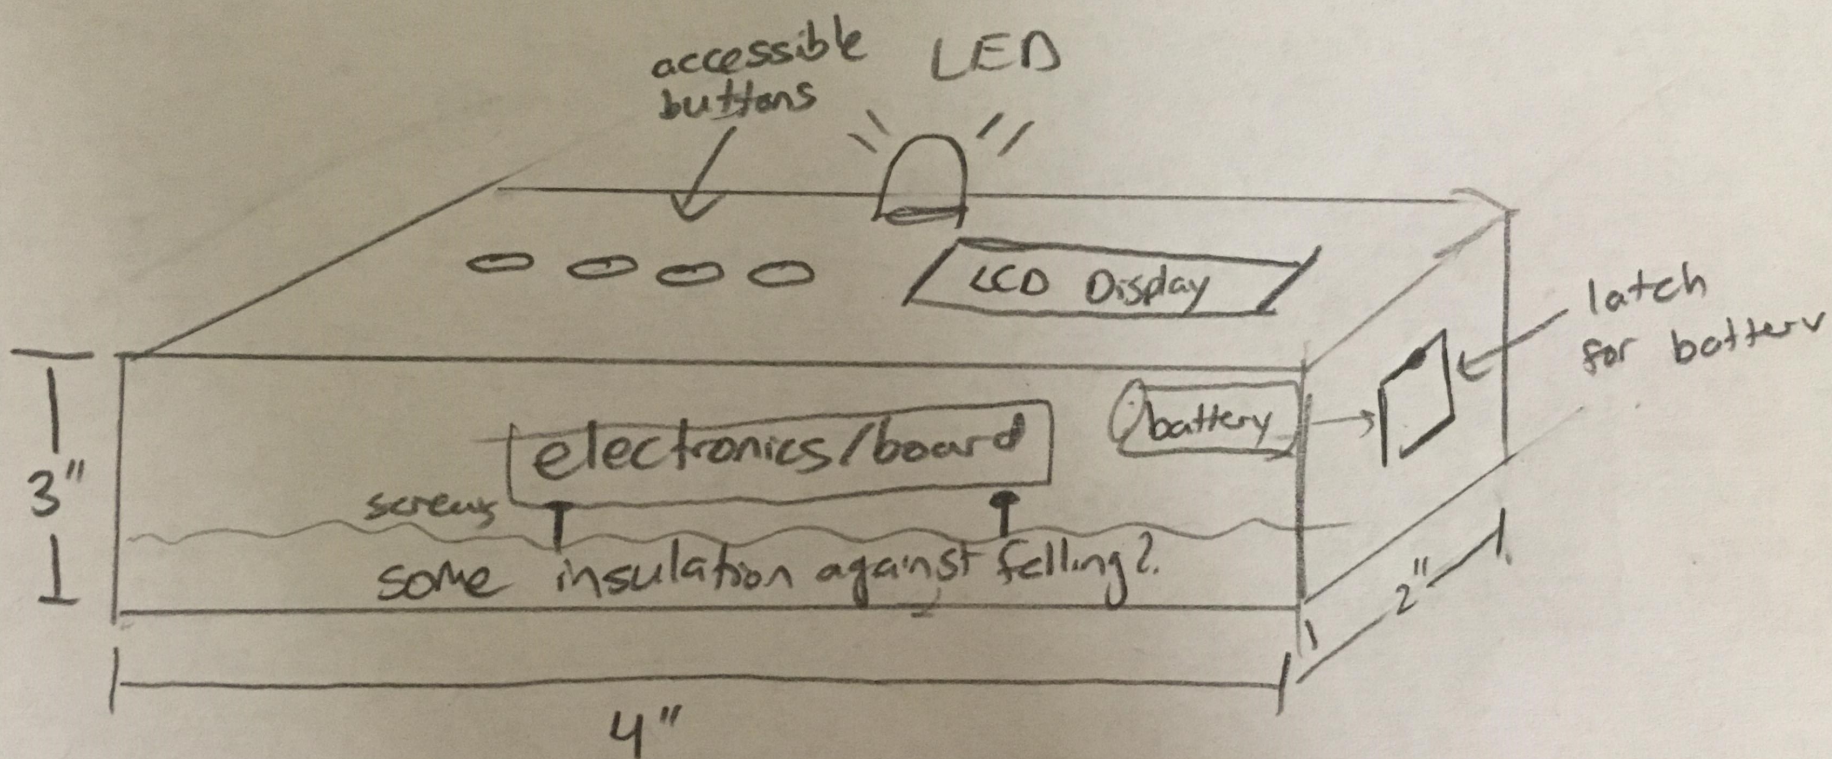 accessible
buttons
LED
LCD Display
latch
for battery
battery
electronics/board
screws
some insulation against falling?
3"
2"
4"